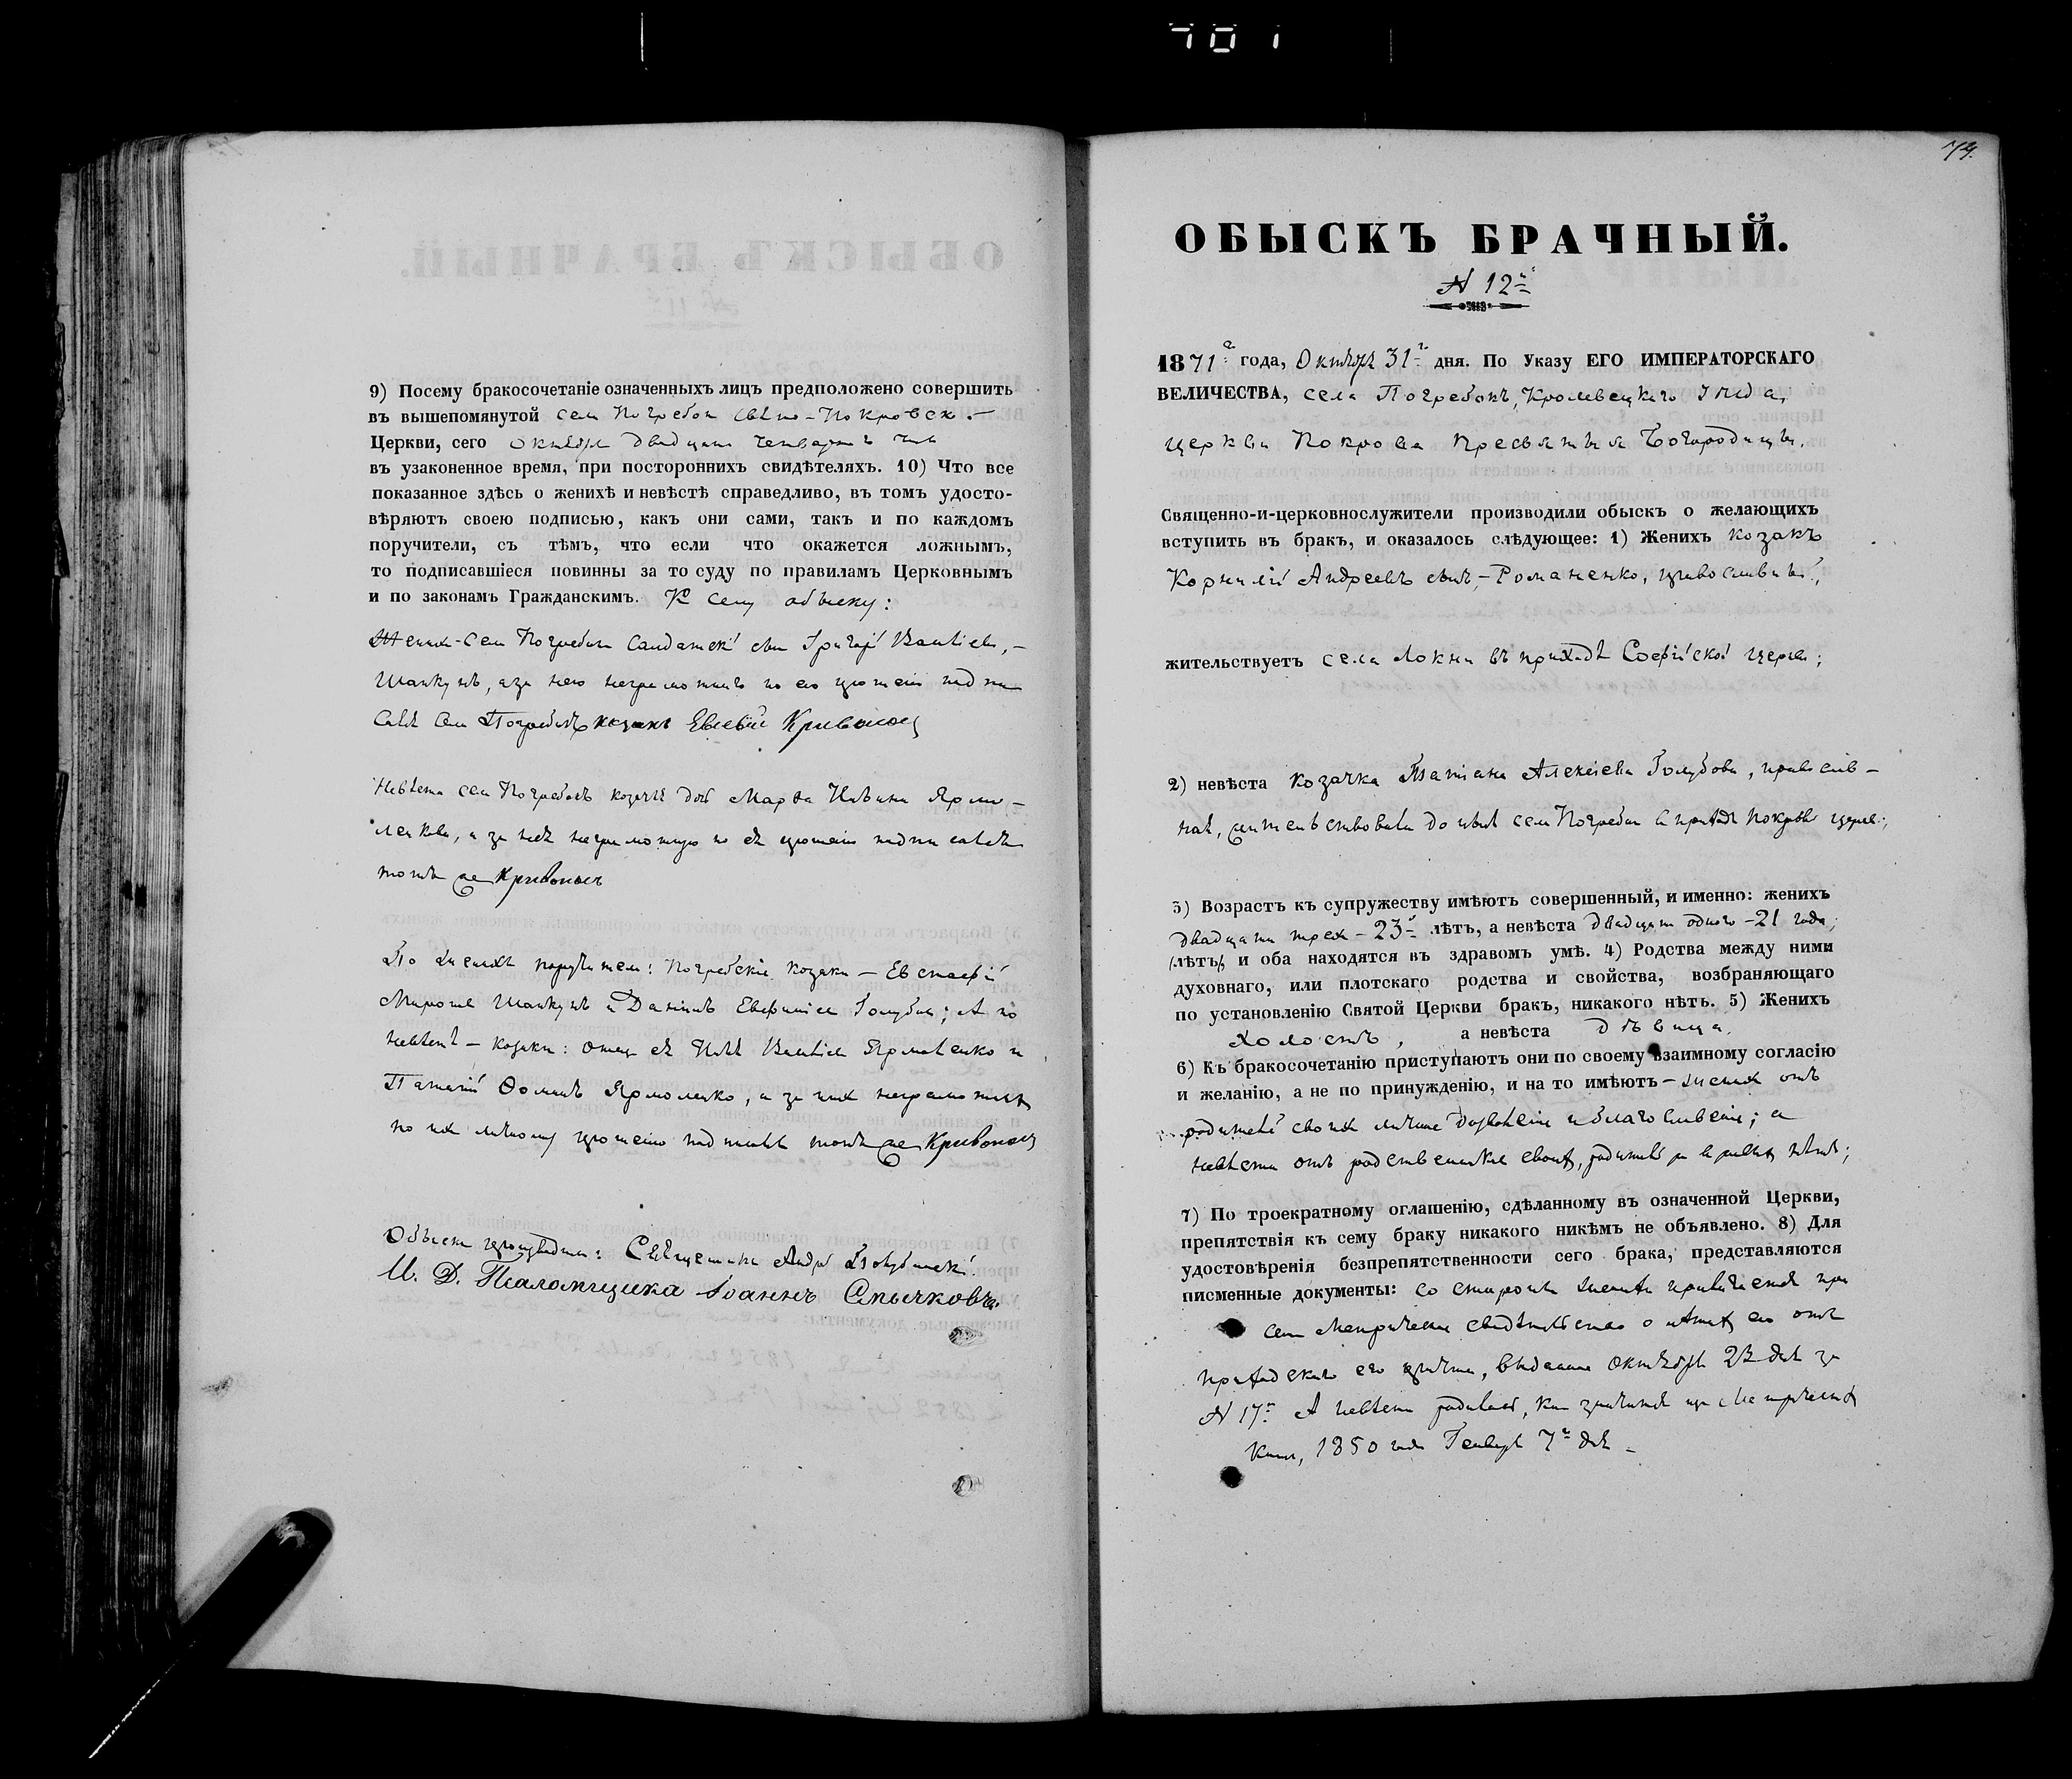 701
9) Посему бракосочетаніе означенныхъ лицъ предположено совершить
въ вышепомянутой села Погребокъ Свято-Покровск.
Церкви, сего октября двадцать четвертаго
въ узаконенное время, при постороннихъ свидѣтеляхъ. 10) Что все
показанное здѣсь о женихѣ и невѣстѣ справедливо, въ томъ удосто-
вѣряютъ своею подписью, какъ они сами, такъ и по каждомъ
поручители, съ тѣмъ, что если что окажется ложнымъ,
то подписавшіеся повинны за то суду по правиламъ Церковнымъ
и по законамъ Гражданскимъ. К сему обыску:
Женихъ - села Погребокъ Григорій
Шапкунъ, а за него неграмотнаго по его прошенію подпи
салъ села Погребокъ козакъ Евсевій Кривоносъ
Невѣста села Погребокъ козачья дочь Марѳа Ярмо-
ленкова, а за неё неграмотную по её прошенію подписался
тотъ же Кривоносъ
По женихѣ поручители: Погребскіе козаки - Евстафій
Мироновъ Шапкунъ и Даніилъ Голубъ; А по
невѣстѣ - козаки: отецъ её Ярмоленко и
Ѳоминъ Ярмоленко, а за них неграмотныхъ
по их личному прошенію подписался тотъ же Кривоносъ
Обыскъ производили: Священникъ
И. Д. Псаломщика Іоаннъ Смычковъ.
74.
ОБЫСКЪ БРАЧНЫЙ.
N 12й
1871го года, Октября 31го дня. По Указу ЕГО ИМПЕРАТОРСКАГО
ВЕЛИЧЕСТВА, села Погребокъ, Кролевецкаго уѣзда,
церкви Покрова Пресвятыя Богородицы.
Священно-и-церковнослужители производили обыскъ о желающихъ
вступить въ бракъ, и оказалось слѣдующее: 1) Женихъ козакъ
Корнилій Андреевъ сынъ - Романенко, православный,
жительствуетъ села Локни въ приходѣ Софійской церкви;
2) невѣста козачка Татіана Алексіева Голубова, православ-
ная, жительствовала до нынѣ села Погребокъ в приходѣ Покровской церкви;
3) Возрастъ къ супружеству имѣютъ совершенный, и именно: женихъ
двадцати трехъ - 23й лѣтъ, а невѣста двадцати одного - 21 года;
(лѣтъ) и оба находятся въ здравомъ умѣ. 4) Родства между ними
духовнаго, или плотскаго родства и свойства, возбраняющаго
по установленію Святой Церкви бракъ, никакого нѣтъ. 5) Женихъ
холостъ, а невѣста дѣвица.
6) Къ бракосочетанію приступаютъ они по своему взаимному согласію
и желанію, а не по принужденію, и на то имѣютъ - женихъ отъ
родителей своихъ личное дозволеніе и благословеніе; а
невѣста отъ родственниковъ своихъ, родителей в живыхъ нѣтъ;
7) По троекратному оглашенію, сдѣланному въ означенной Церкви,
препятствія къ сему браку никакого никѣмъ не объявлено. 8) Для
удостовѣренія безпрепятственности сего брака, представляются
писменные документы: Со стороны жениха при
семъ Метрическое свидѣтельство о лѣтахъ его отъ
приходскаго его причта, выданное Октября 23 дня за
N 17м А невѣста родилась, какъ значится по Метрической
книгѣ, 1850 года Генваря 7го дня -